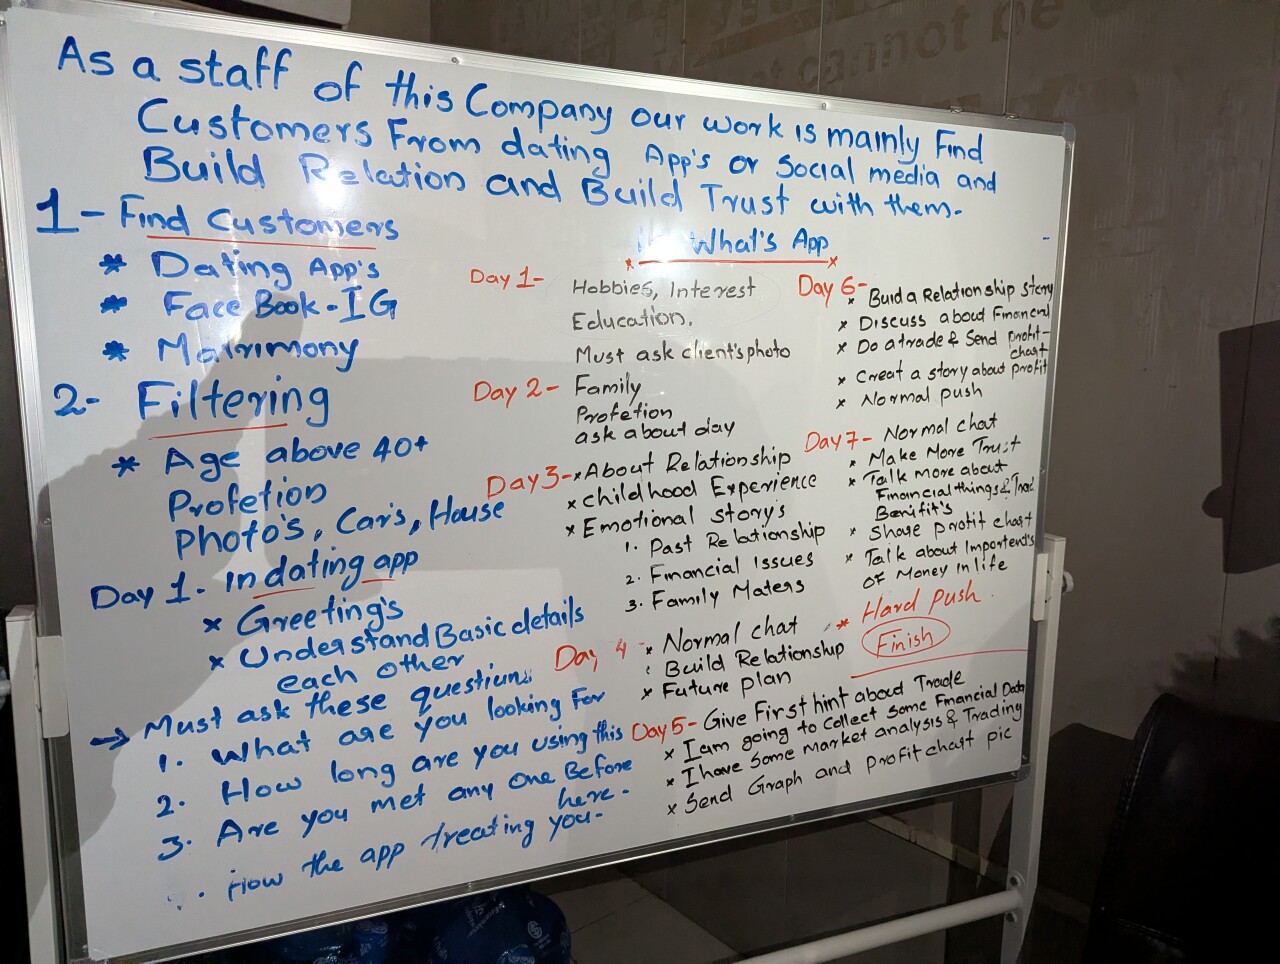 As a staff of this Company our work is mainly Find
Customers From dating App's or Social media and
Build Relation and Build Trust with them.
1- Find Customers
* Dating App's
* Face Book - IG
* Matrimony
2- Filtering
* Age above 40+
Profetion
Photo's, Car's, House
Day 1. In dating app
x Greeting's
x Understand Basic details
each other
→ Must ask these questions
1. What are you looking For
2. How long are you using this
3. Are you met any one Before
here.
How the app treating you.
What's App
Day 1- Hobbies, Interest
Education.
Must ask client's photo
Day 2- Family
Profetion
ask about day
Day 3- x About Relationship
x childhood Experience
x Emotional story's
1. Past Relationship
2. Financial Issues
3. Family Maters
Day 4- x Normal chat
Build Relationship
x Future plan
Day 5- Give First hint about Trade
x I am going to collect some Financial Data
x I have some market analysis & Trading
x Send Graph and profit chart pic
Day 6-
x Buid a Relationship story
x Discuss about Financial
x Do a trade & Send profit-
chart
x Creat a story about profit
x Normal push
Day 7- Normal chat
x Make More Trust
x Talk more about
Financial things &
Benifit's
x Share profit chart
x Talk about Importend's
of Money in life
* Hard push.
Finish
cannot be